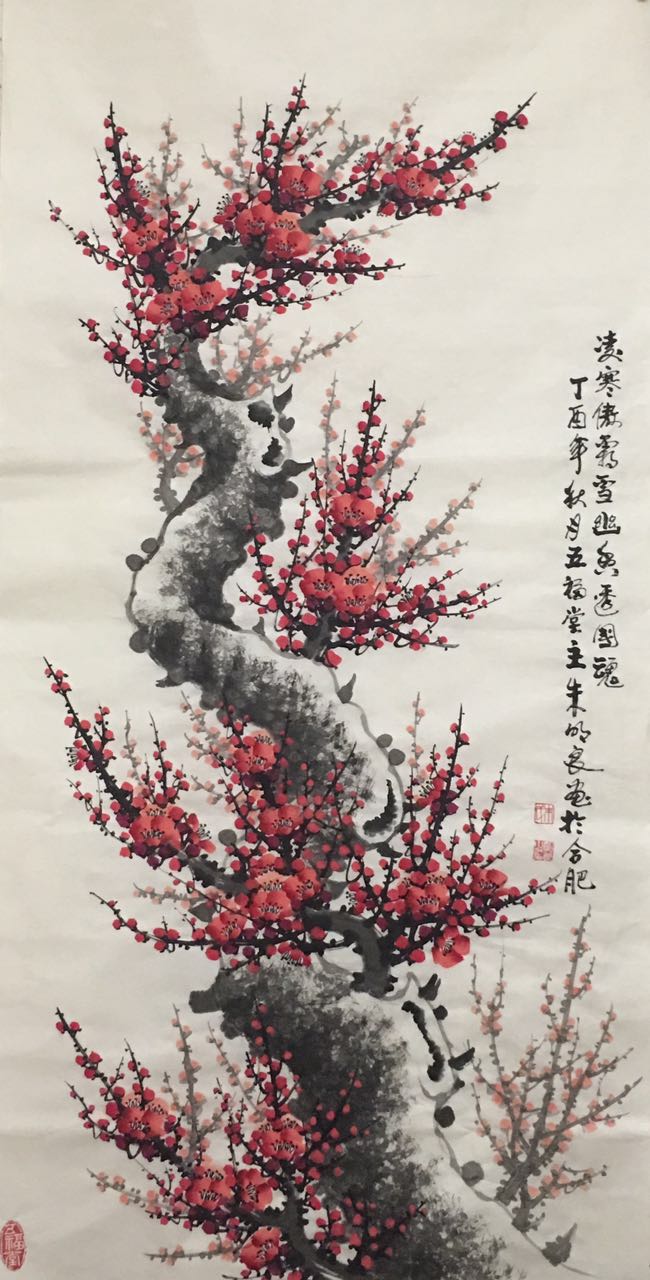 凌寒傲霜雪幽香透国魂
丁酉年秋月五福堂主朱明良画於合肥
五福堂